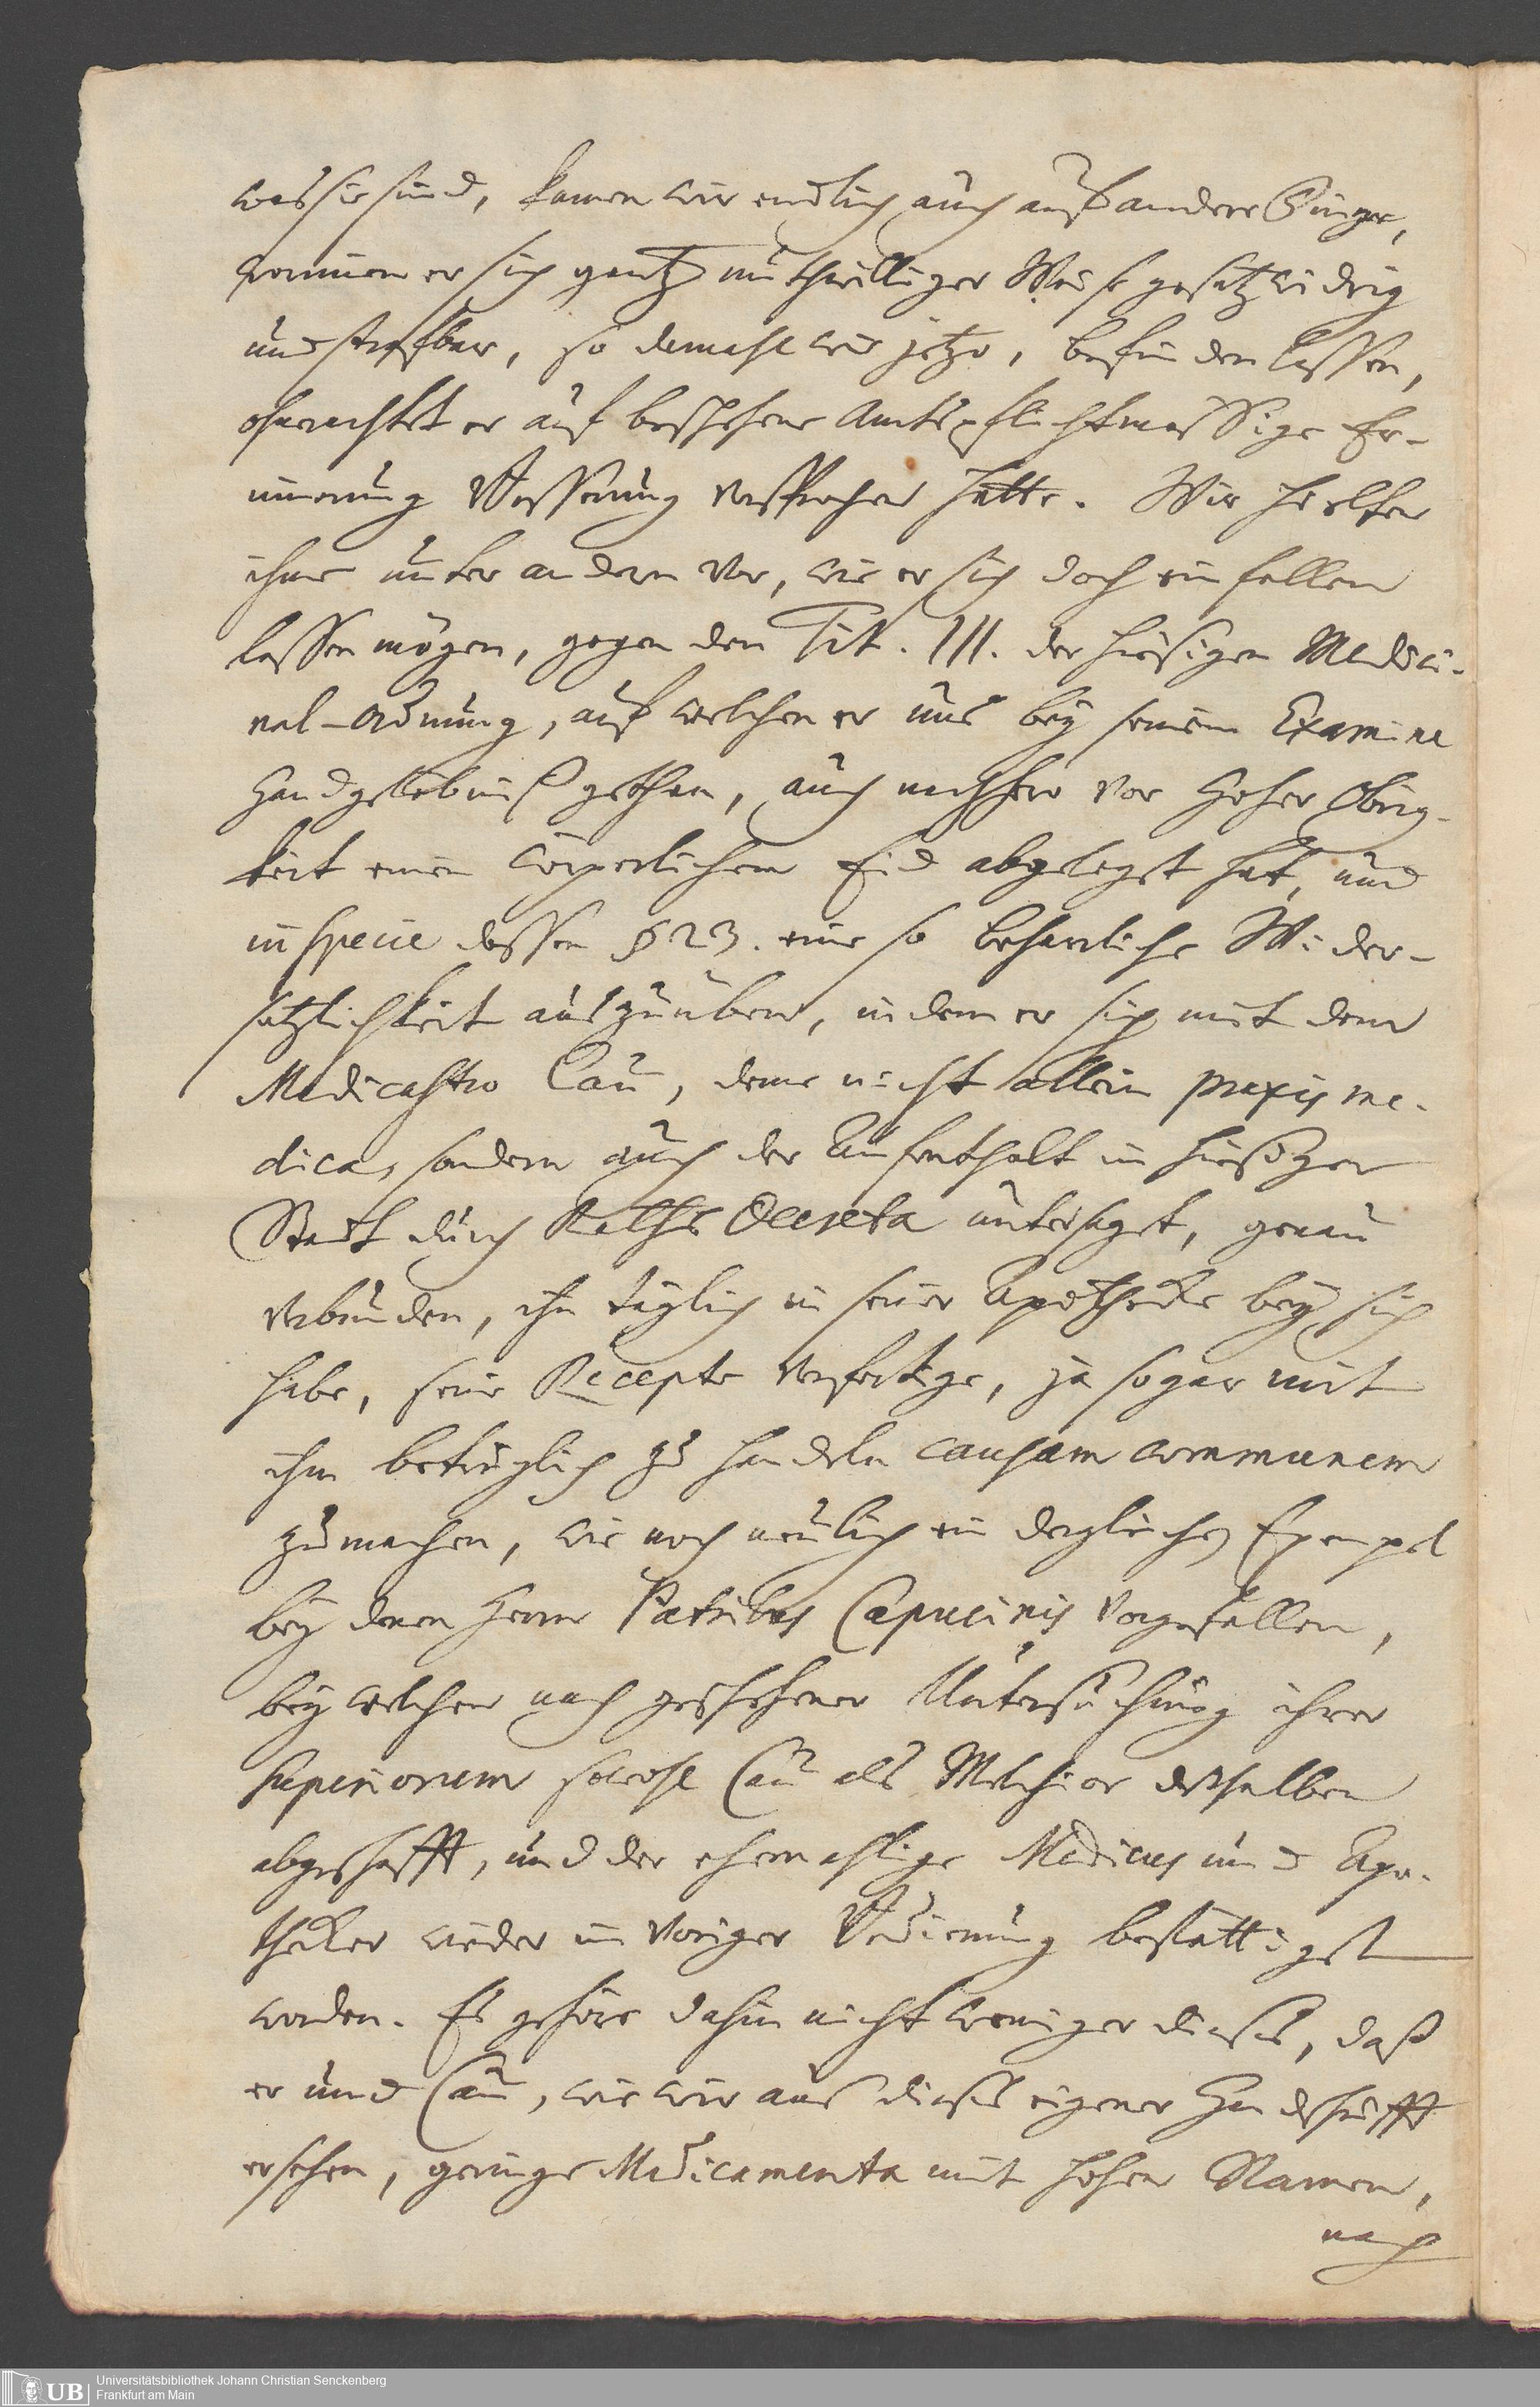 was sie sind, kamen wir endlich auch auf andere Dinge,
worinnen er sich gantz muthwilliger Weise gesetzwidrig
und straffbar, so damahl wie jetzo, befinden lassen,
ohnerachtet er auf beschehene Amtspflichtmassige Er-
innerung Besserung versprochen hatte. Wir hielten
ihme unter andern vor, wie er sich doch einfallen
lassen mögen, gegen den Tit. III. der hiesigen Medici-
nal-Ordnung, auf welchen er uns bey seinem Examine
Handgelöbniß gethan, auch nachher vor Hoher Obrig-
keit einen cörperlichen Eid abgelegt hat, und
in specie dessen § 23. eine so beharrliche Wider-
setzlichkeit auszuüben, indem er sich mit dem
Medicastro Cau, deme nicht allein praxis me-
dica, sondern auch der Aufenthalt in hiesiger
Stadt durch Raths Decreta untersaget, genau
verbunden, ihn täglich in seiner Apothecke bey sich
habe, seine Recepte verfertige, ja sogar mit
ihm betrüglich zu handeln causam communem
zu machen, wie noch neulich ein dergleichen Exempel
bey denen Herren Patribus Capucinis vorgefallen,
bey welchen nach geschehener Untersuchung ihrer
superiorum sowohl Cau als Melchior deshalben
abgeschafft, und der ehemahlige Medicus und Apo-
thecker wieder in voriger Bedienung bestättiget
worden. Es gehöre dahin nicht weniger dieses, daß
er und Cau, wie wir aus dieses eigener Handschrifft
ersehen, geringe Medicamenta mit hohen Namen,
nach
Universitätsbibliothek Johann Christian Senckenberg
Frankfurt am Main
UB